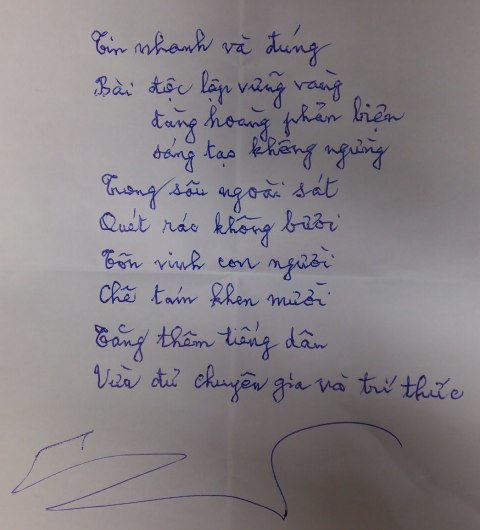 Tin nhanh và đúng
Bài độc lập vững vàng
đàng hoàng phản biện
sáng tạo không ngừng
Trong sâu ngoài sát
Quét rác không bươi
Tôn vinh con người
Chê tám khen mười
Tăng thêm tiếng dân
Vừa đủ chuyên gia và trí thức